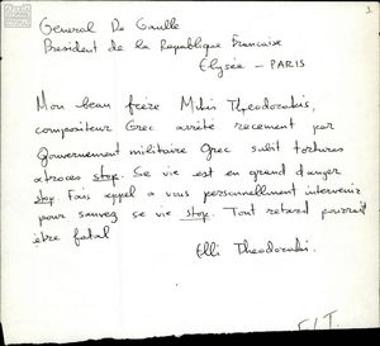 1
General De Gaulle
President de la Republique Francaise
Elysée - PARIS
Mon beau frère Mikis Theodorakis,
compositeur Grec arrêté recement par
Gouvernement militaire Grec subit tortures
atroces stop. Se vie est en grand danger
stop. Fais appel a vous personnellment intervenir
pour sauvez se vie stop. Tout retard pourrait
être fatal
Elli Theodorakis.